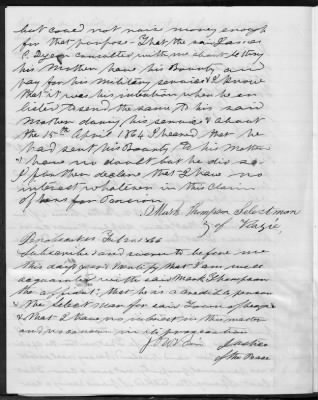 but could not raise money enough
for that purpose - That the said James
C. Dyer consulted with me about letting
his Mother have his Bounty and
pay for his Military services & I know
that it was his intention when he en-
listed to send the same to his said
Mother during his service & about
the 15th April 1864 I heard that he
had sent his Bounty to his Mother
& have no doubt but he did so
I further declare that I have no
interest whatever in this Claim
of hers for Pension
Mark Thompson Selectman
of Veazie,
Penobscot ss
Subscribed and sworn to before me
this day & year & I certify that I am well
acquainted with the said Mark Thompson
the affiant; that he is a credible person
& the Selectman for said Town of Veazie
& that I have no interest in this matter
and no concern in its prosecution
Justice
of the Peace